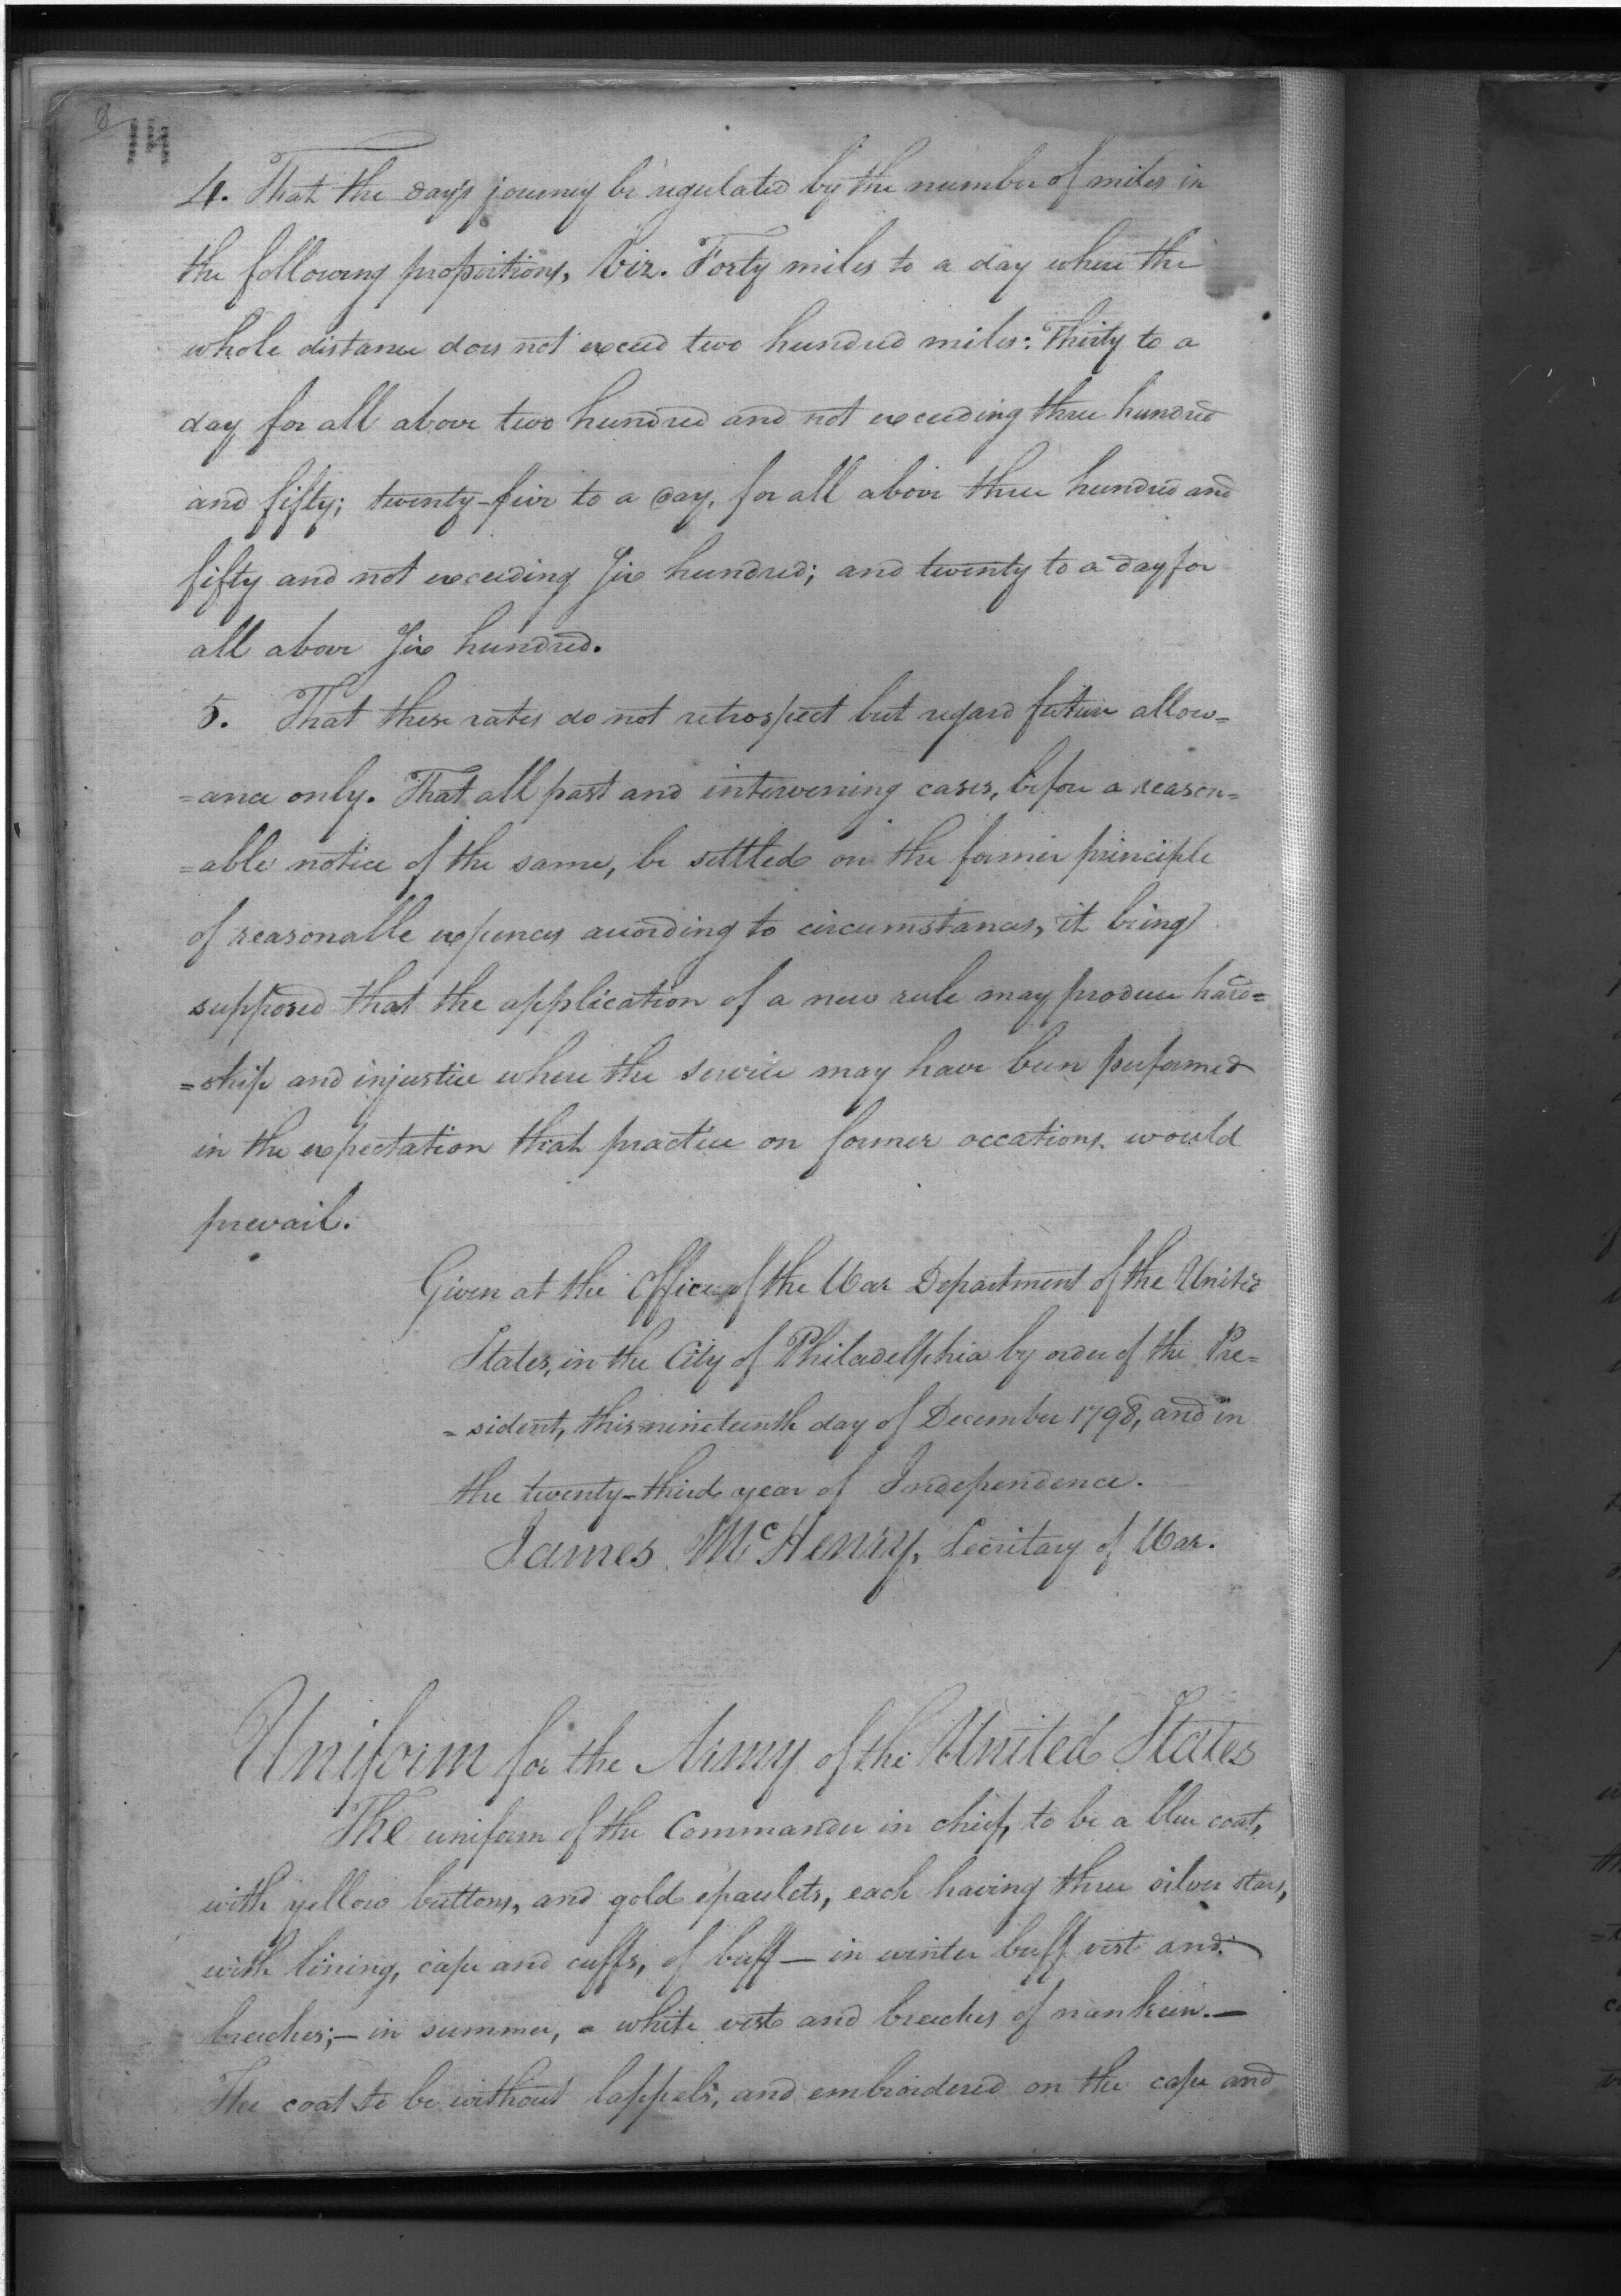 8
4. That the day's journey be regulated by the number of miles in
the following proportions, Viz. Forty miles to a day where the
whole distance does not exceed two hundred miles: Thirty to a
day for all above two hundred and not exceeding three hundred
and fifty; twenty-five to a day, for all above three hundred and
fifty and not exceeding Six hundred; and twenty to a day for
all above Six hundred.
5. That these rates do not retrospect but regard future allow=
=ance only. That all past and intervening cases, before a reason=
=able notice of the same, be settled on the former principle
of reasonable expences according to circumstances, it being
supposed that the application of a new rule may produce hard=
=ship and injustice where the service may have been performed
in the expectation that practice on former occations would
prevail.
Given at the Office of the War Department of the United
States, in the City of Philadelphia by order of the Pre=
=sident, this nineteenth day of December 1798, and in
the twenty-third year of Independence.
James McHenry, Secritary of War.
Uniform for the Army of the United States
The uniform of the Commander in chief, to be a blue coat,
with yellow buttons, and gold epaulets, each having three silver stars,
with lining, cape and cuffs, of buff — in winter buff vest and
breeches; — in summer, a white vest and breeches of nankeen. —
The coat to be without lappels, and embroidered on the cape and